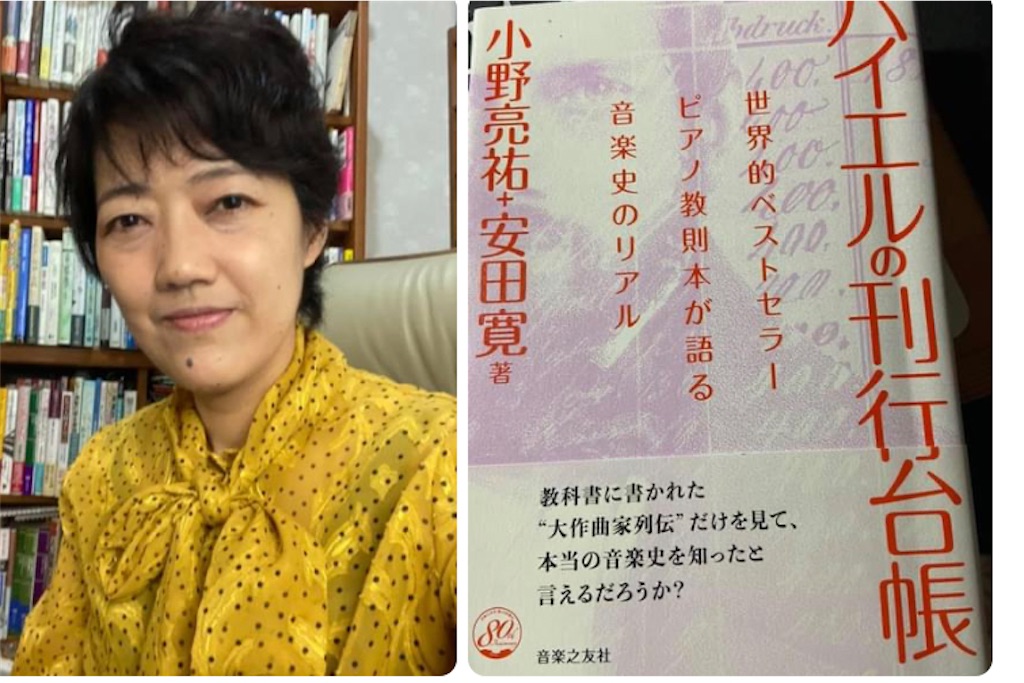 ハイエルの刊行台帳
世界的ベストセラー
ピアノ教則本が語る
音楽史のリアル
小野亮祐+安田寛 著
教科書に書かれた
“大作曲家列伝”だけを見て、
本当の音楽史を知ったと
言えるだろうか?
80th
音楽之友社
druck.
400.